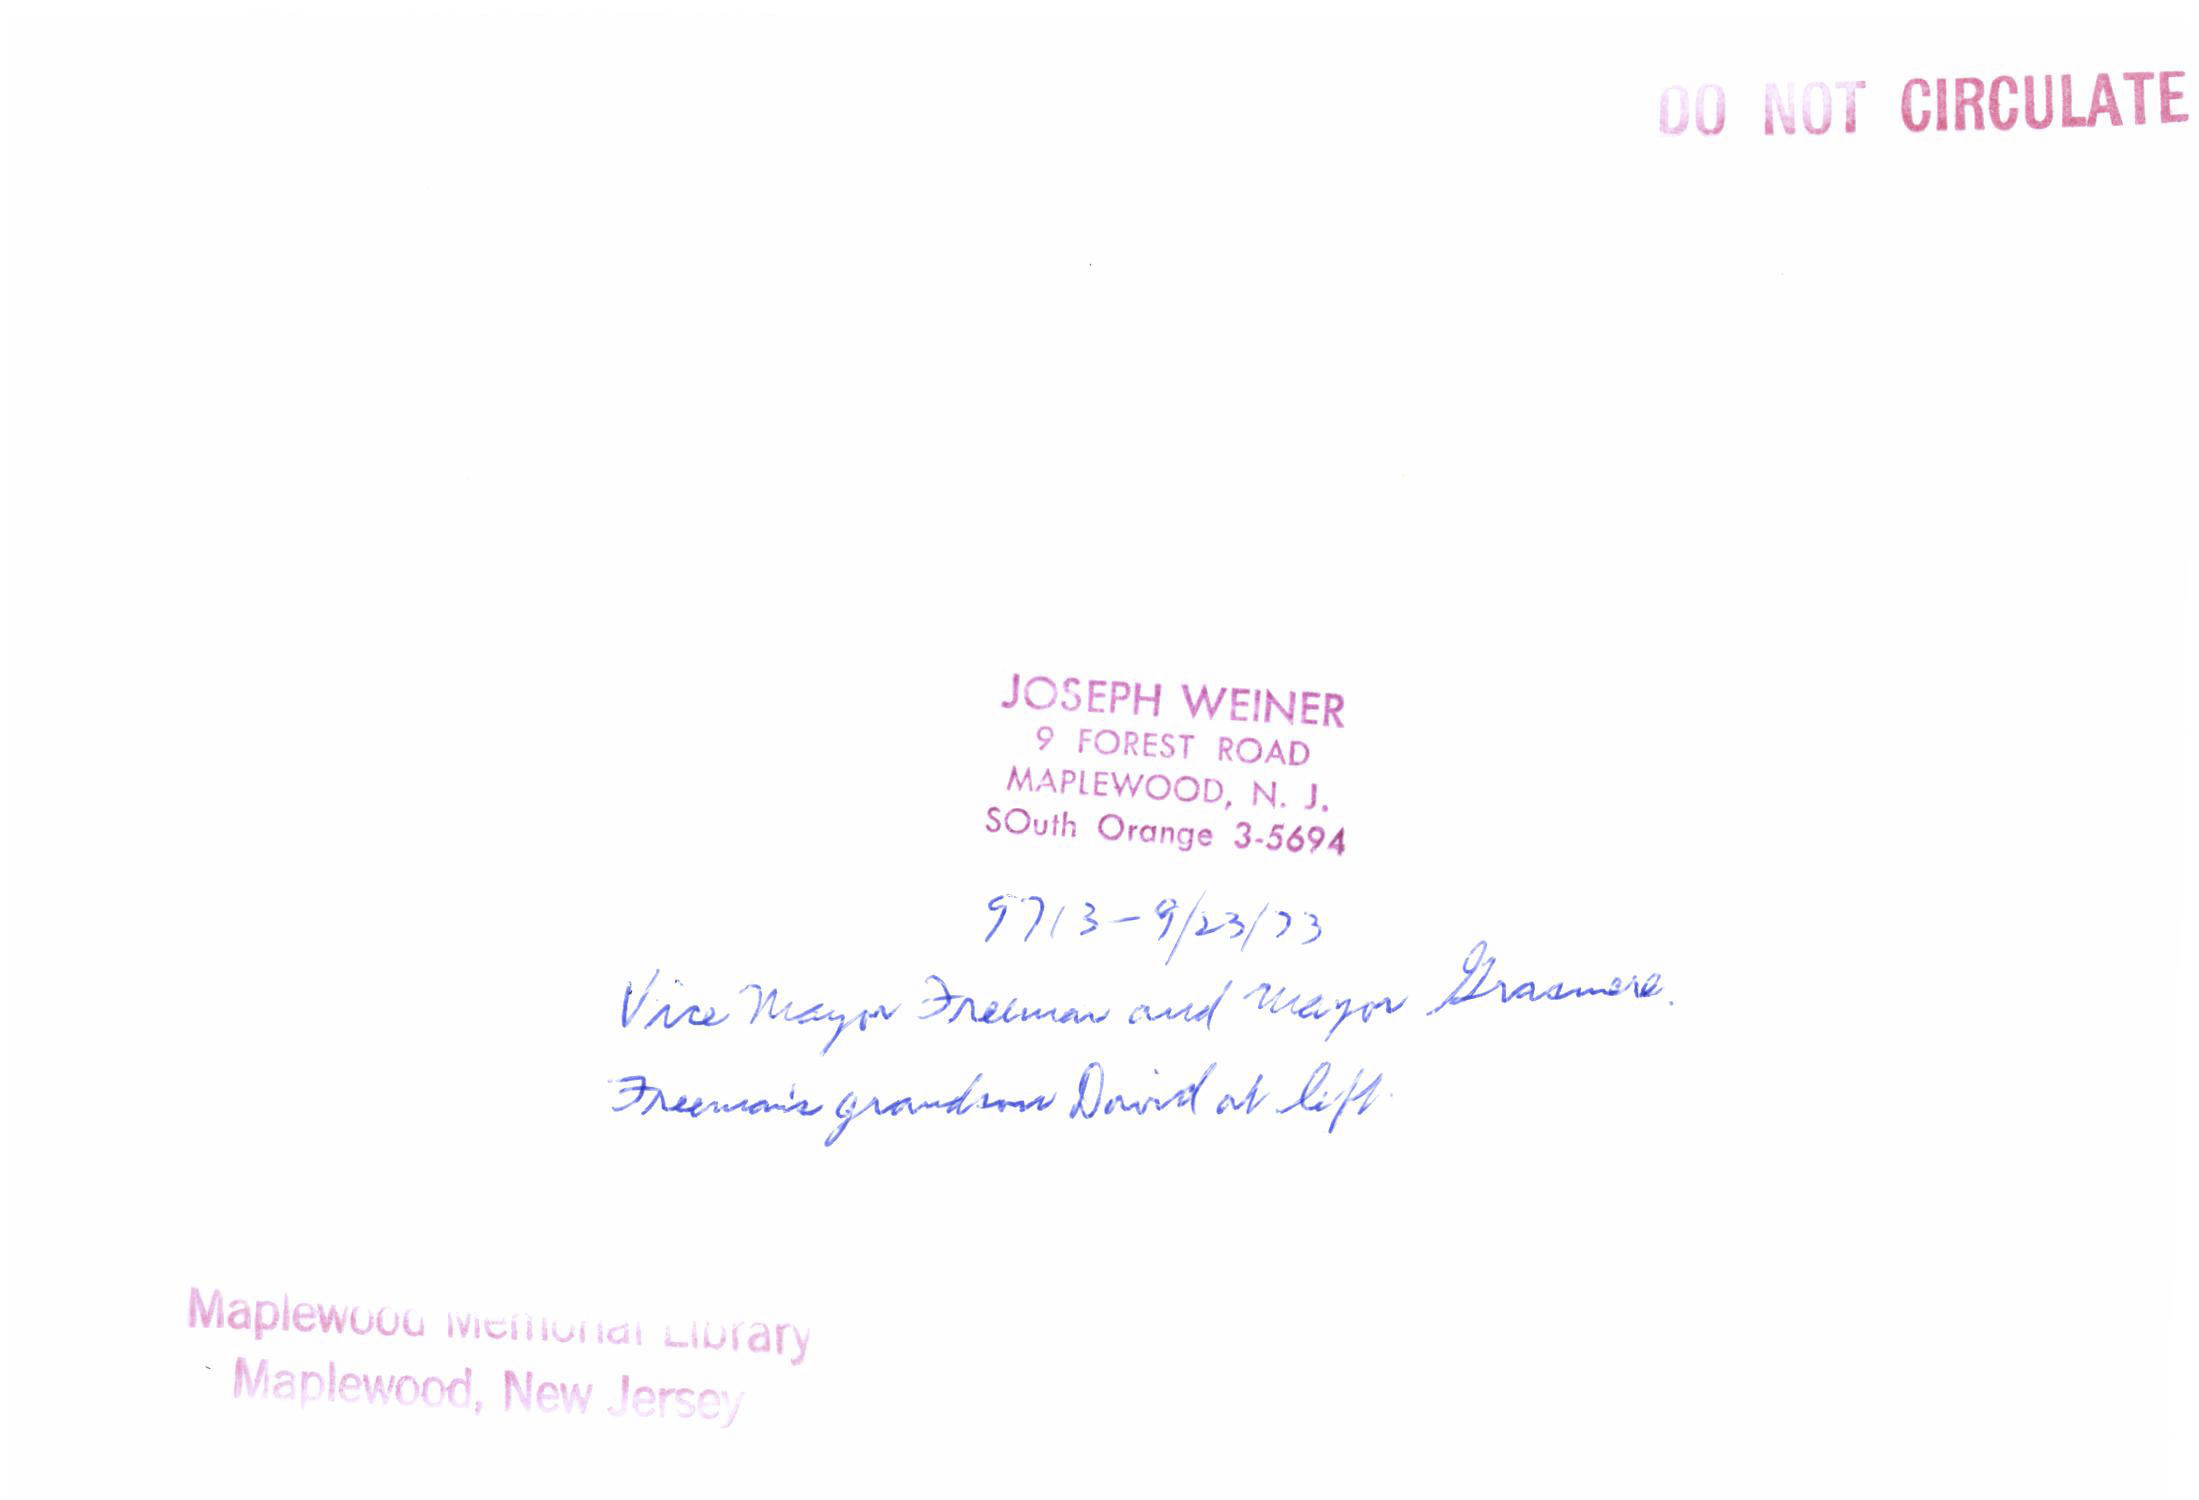 DO NOT CIRCULATE
JOSEPH WEINER
9 FOREST ROAD
MAPLEWOOD, N. J.
SOuth Orange 3-5694
9713-9/23/73
Vice Mayor Freeman and Mayor Grasmere.
Freeman's grandson David at left.
Maplewood Memorial Library
Maplewood, New Jersey